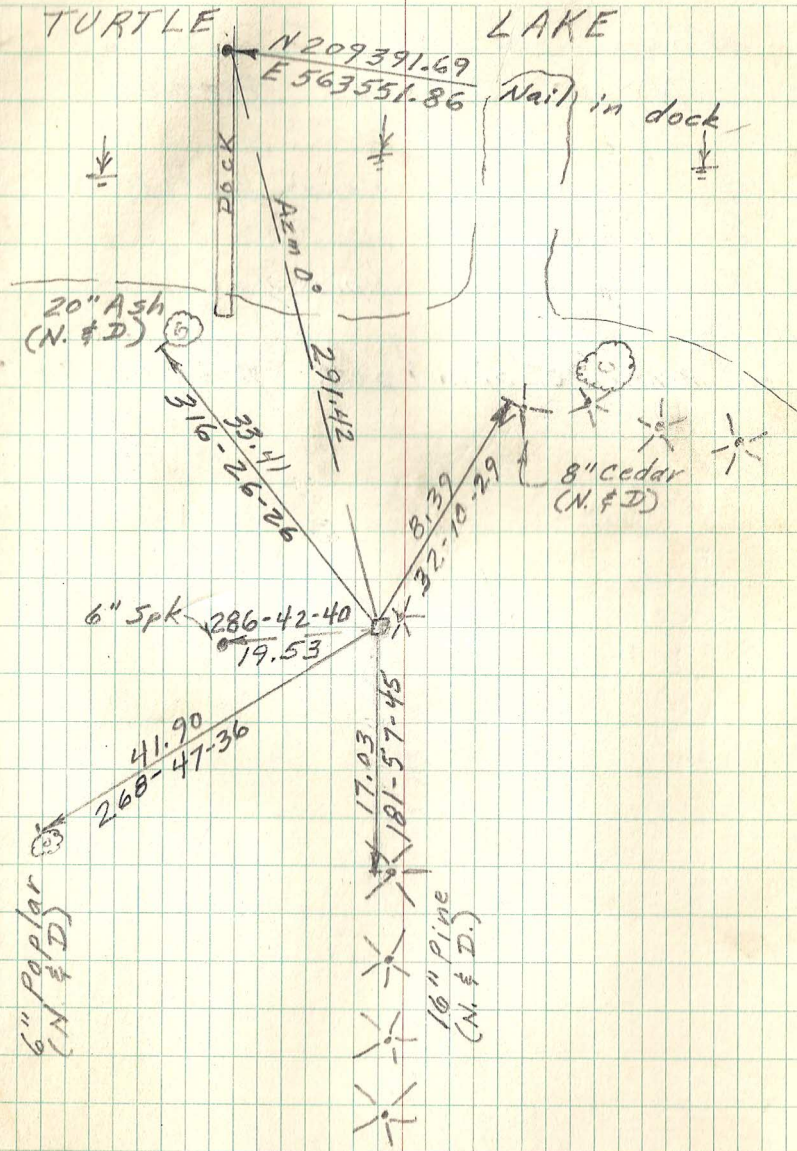 TURTLE LAKE
N 209391.69
E 563551.86
Nail in dock
DOCK
Azm 0°
291.42
20" Ash
(N. & D.)
33.41
316-26-26
8.39
32-10-29
8" Cedar
(N. & D)
6" Spk
286-42-40
19.53
41.90
268-47-36
17.03
181-57-45
6" Poplar
(N. & D)
16" Pine
(N. & D.)